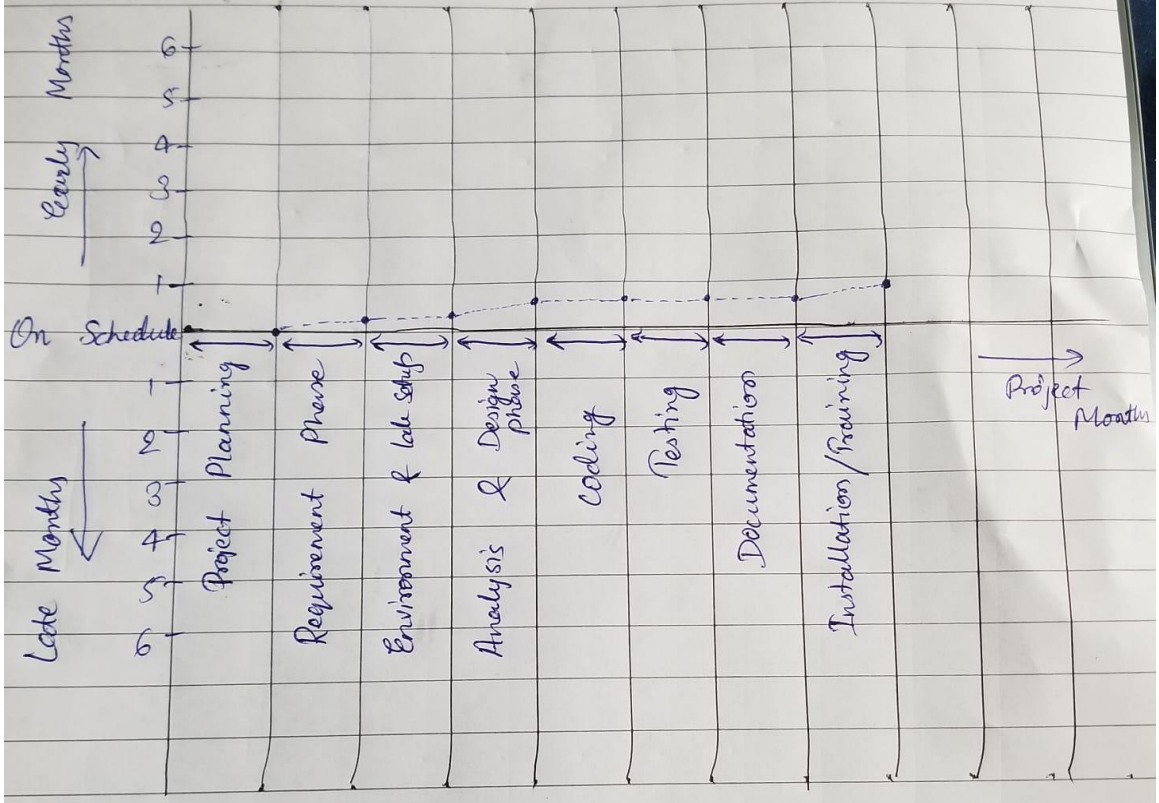 Early Months
6
5
4
3
2
1
On Schedule
1
2
3
4
5
6
Late Months
Project Planning
Requirement Phase
Environment & lab setup
Analysis & Design
phase
Coding
Testing
Documentation
Installation/Training
Project
Months